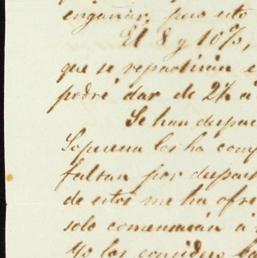 engañar, pero esto
El 8 y 10%,
que se repartirán e
podré dar de 2% á
Se han despac
Sopuena los ha comp
faltan por despach
de estos me ha ofre
solo comensarán á
Yo los considero ba